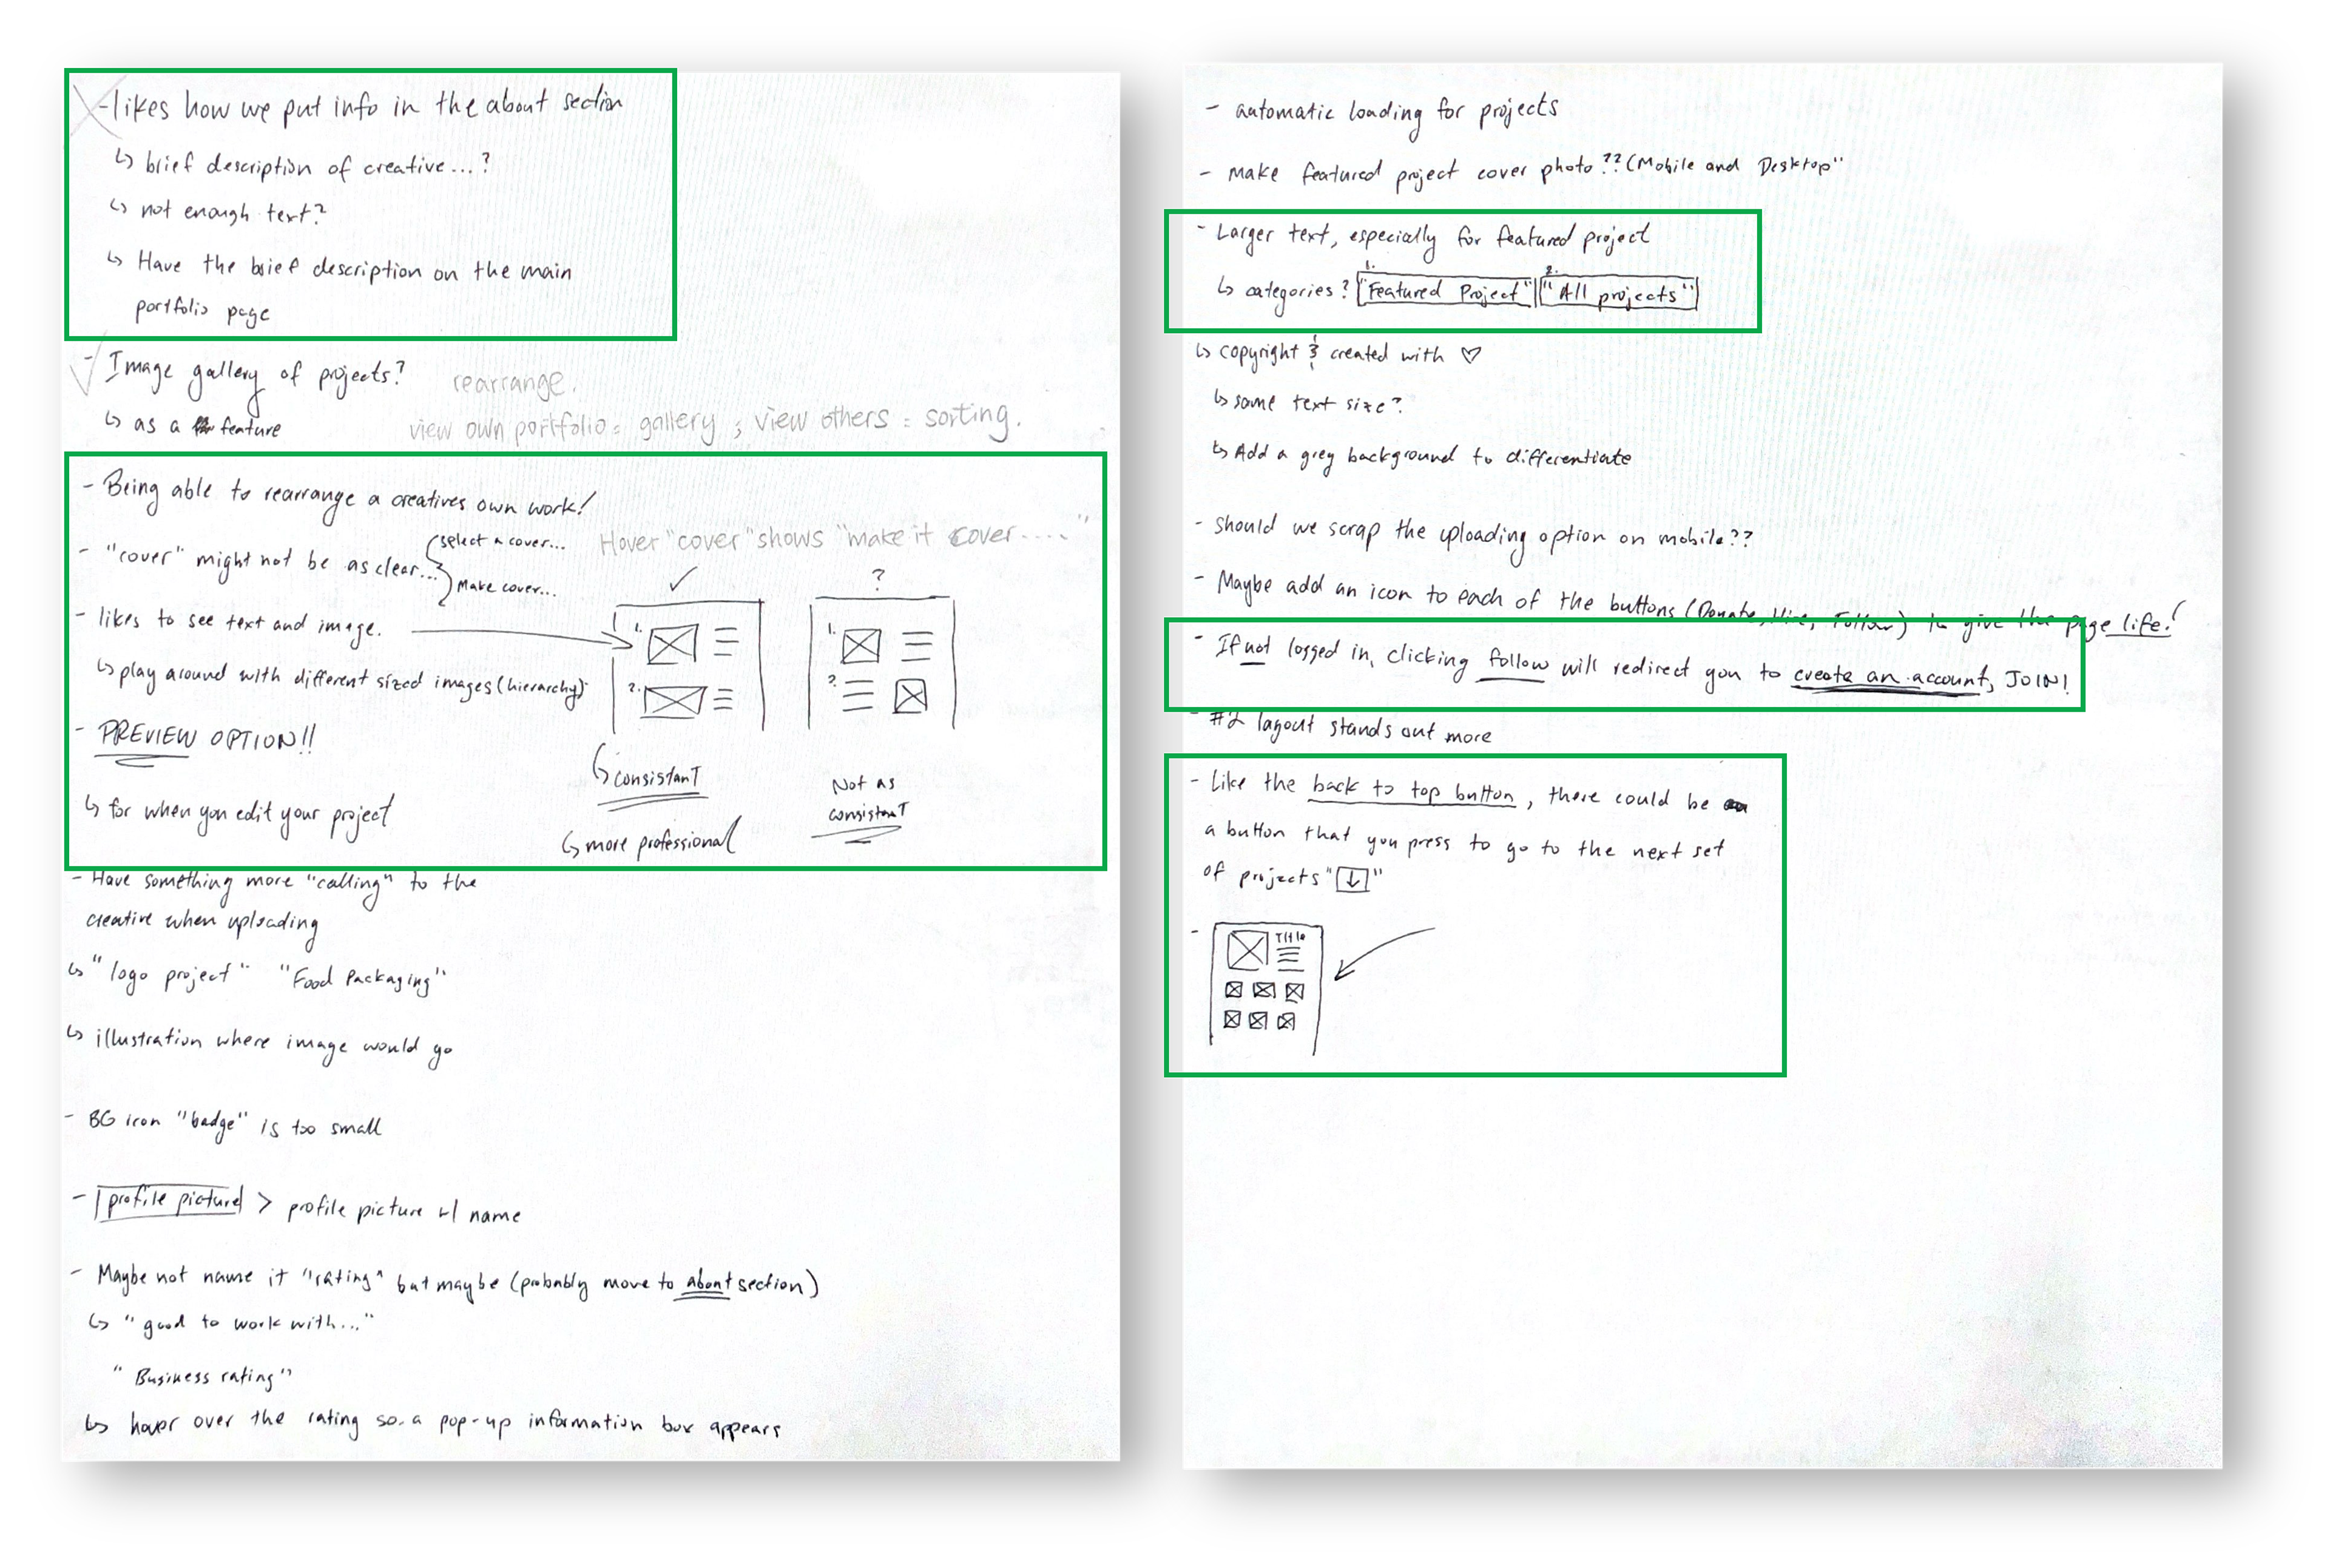 - likes how we put info in the about section
↳ brief description of creative...?
↳ not enough text?
↳ Have the brief description on the main
portfolio page
- Image gallery of projects? rearrange.
↳ as a feature view own portfolio = gallery ; view others = sorting.
- Being able to rearrange a creatives own work!
- "cover" might not be as clear... select a cover... Make cover... Hover "cover" shows "make it cover ...."
- likes to see text and image.
↳ play around with different sized images (hierarchy)
✓ 1. 2.
? 1. 2.
- PREVIEW OPTION!!
↳ for when you edit your project
↳ consistant
↳ more professional
Not as
consistant
- Have something more "calling" to the
creative when uploading
↳ "logo project" "Food Packaging"
↳ illustration where image would go
- BG icon "badge" is too small
- profile picture > profile picture w/ name
- Maybe not name it "rating" but maybe (probably move to about section)
↳ "good to work with..."
"Business rating"
↳ hover over the rating so a pop-up information box appears
- automatic loading for projects
- make featured project cover photo?? (Mobile and Desktop"
- Larger text, especially for featured project
↳ categories? 1. "Featured Project" 2. "All projects"
↳ copyright & created with ♡
↳ same text size?
↳ Add a grey background to differentiate
- should we scrap the uploading option on mobile??
- Maybe add an icon to each of the buttons (Donate, Hire, Follow) to give the page life!
- If not logged in, clicking follow will redirect you to create an account, JOIN!
- #2 layout stands out more
- Like the back to top button, there could be
a button that you press to go to the next set
of projects "↓"
- Title